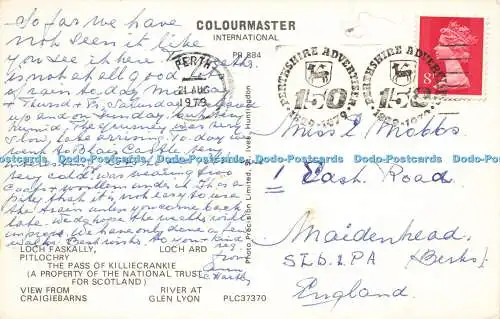 COLOURMASTER
INTERNATIONAL
PR 884
So far we have
not seen it like
you see it here.
is not at all good
of rain to day Monday
& Thursd & Fri. Saturday
up and on Sunday
humid. The journey was very
slow, late arriving to day
went to Blair Castle very
very cold. was wearing two
coats & woollen under it. It is a
pity that it is not easy to use
the train unless you come back
late. We do hope the weather will
improve. We have only done a few
walks. Best wishes to you & kind
reg.
From
LOCH FASKALLY,
PITLOCHRY
LOCH ARD
THE PASS OF KILLIECRANKIE
(A PROPERTY OF THE NATIONAL TRUST
FOR SCOTLAND)
VIEW FROM
CRAIGIEBARNS
RIVER AT
GLEN LYON
PLC37370
Photo Precision Limited, St. Ives, Huntingdon
PERTH
21 AUG
1979
PERTHSHIRE ADVERTISER
150
1829-1979
PERTHSHIRE ADVERTISER
150
1829-1979
8
Miss E Mobbs
East Road
Maidenhead
SL6 1PA (Berks)
England.
Dodo-Postcards Dodo-Postcards Dodo-Postcards Dodo-Postcards Dodo-Postcards